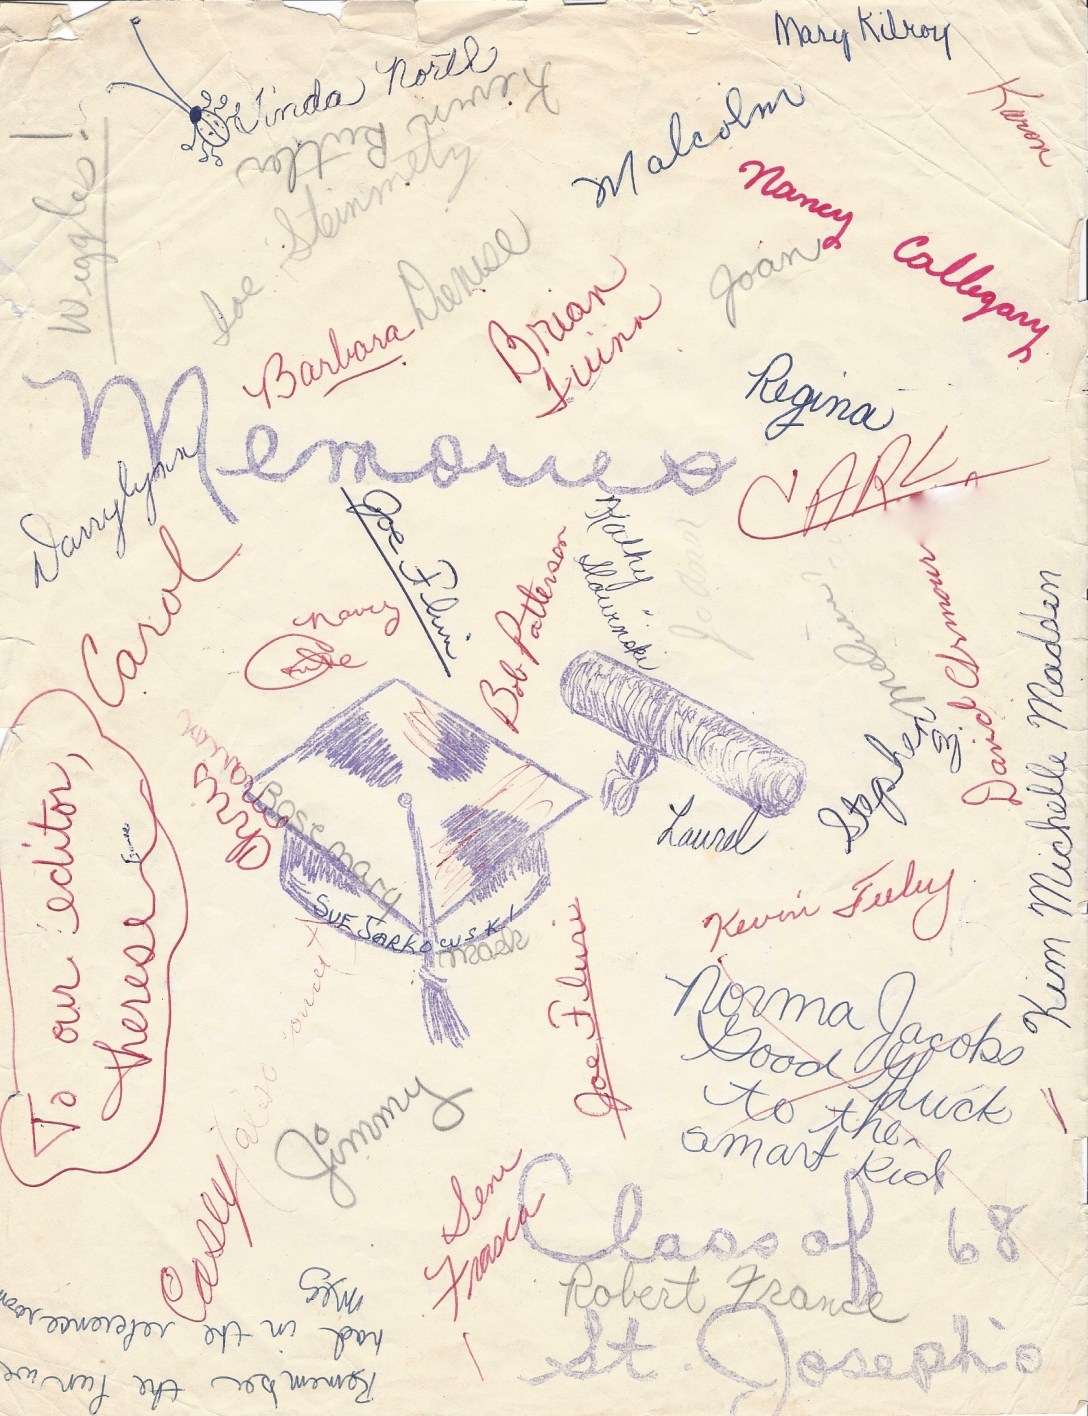 Mary Kilroy
Linda North
Kevin Butler
Karon
Malcolm
Joe Steinmetz
Wiggles!
Nancy Callegary
Denise
Joan
Brian Quinn
Barbara
Regina
Memories
CARL
Darrylynn
Joe Flini
Kathy
Bob Patterson
Carol
Nancy
David
Kim Michelle Madden
Stephen
Chris
Rosemary
Laurel
To our editor,
Therese
Kevin Feeley
SUE SARKOCUSKI
Mark
Joe Flini
Norma Jacobs
Good Luck
to the
smart kid
Jimmy
Casey
Gene
Frasca
Class of 68
Robert France
St. Joseph's
Remember the fun we
had in the reference room
Meg